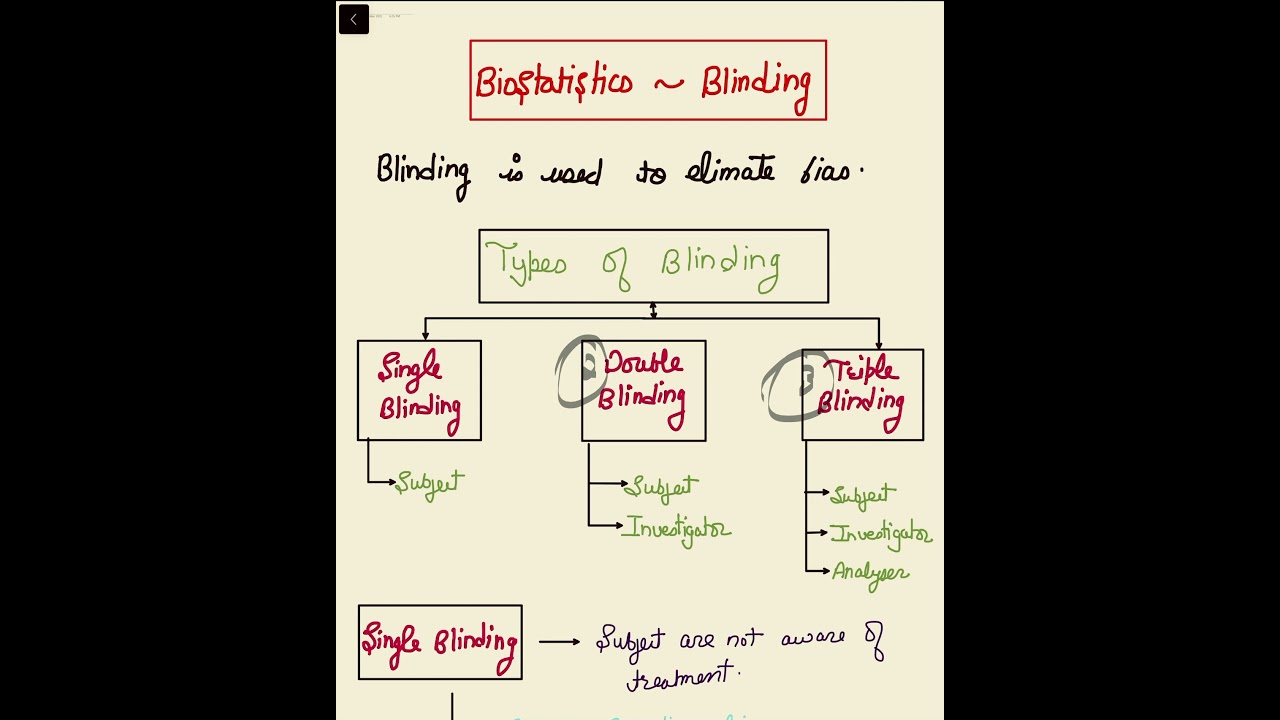 Biostatistics ~ Blinding
Blinding is used to elimate bias.
Types of Blinding
Single
Blinding
2
Double
Blinding
3
Triple
Blinding
Subject
Subject
Investigator
Subject
Investigator
Analyser
Single Blinding
Subject are not aware of
treatment.